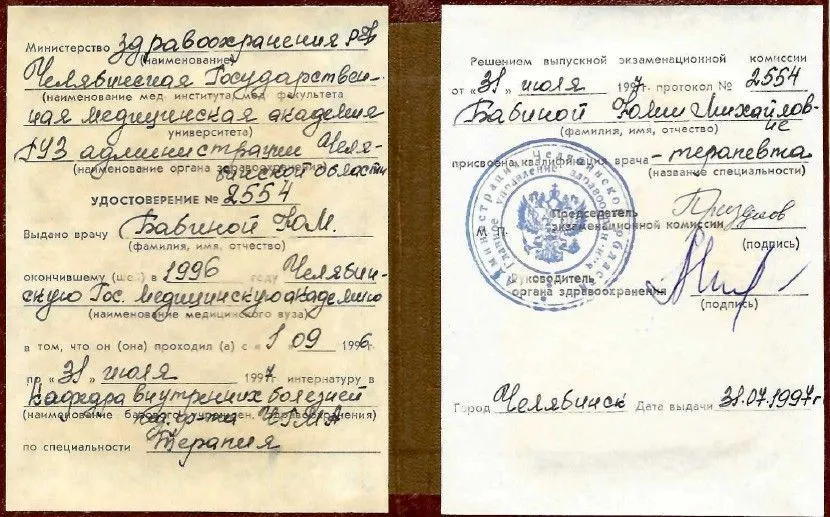 Министерство здравоохранения РФ
(наименование)
Челябинская Государствен-
(наименование мед. института, мед. факультета
ная медицинская академия
университета)
ГУЗ администрации Челя-
(наименование органа здравоохранения)
бинской области
УДОСТОВЕРЕНИЕ № 2554
Выдано врачу Бабиной Ю.М.
(фамилия, имя, отчество)
окончившему (шей) в 1996 году Челябин-
скую Гос. медицинскую академию
(наименование медицинского вуза)
в том, что он (она) проходил (а) с « 1 » 09 1996 г.
по « 31 » июля 1997 г. интернатуру в
Кафедра внутренних болезней
(наименование базового учрежден. здравоохранения)
ЧГМА
по специальности Терапия
Решением выпускной экзаменационной комиссии
от « 31 » июля 1997 г. протокол № 2554
Бабиной Юлии Михайлов-
не
(фамилия, имя, отчество)
присвоена квалификация врача - терапевта
(название специальности)
Председатель
М. П. экзаменационной комиссии
(подпись)
Руководитель
органа здравоохранения
(подпись)
Город Челябинск Дата выдачи 31.07.1997 г